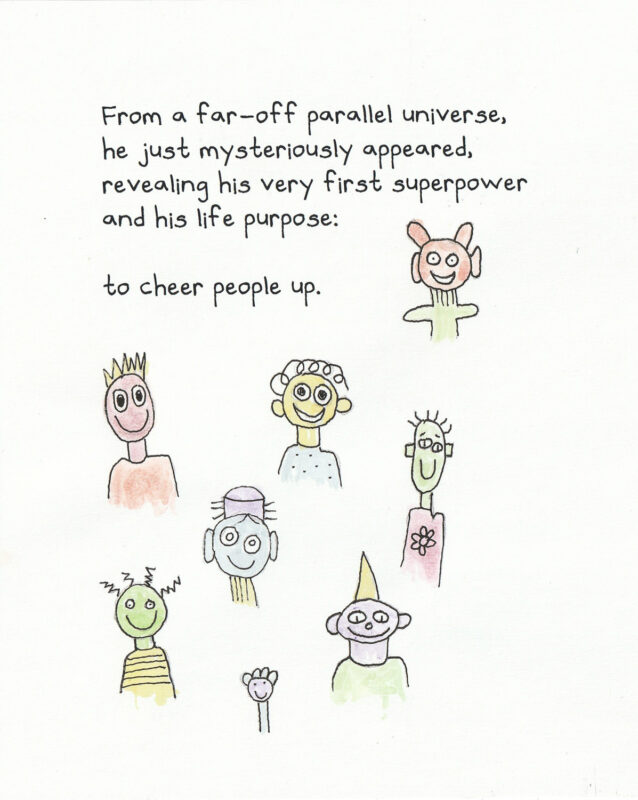 From a far-off parallel universe,
he just mysteriously appeared,
revealing his very first superpower
and his life purpose:
to cheer people up.